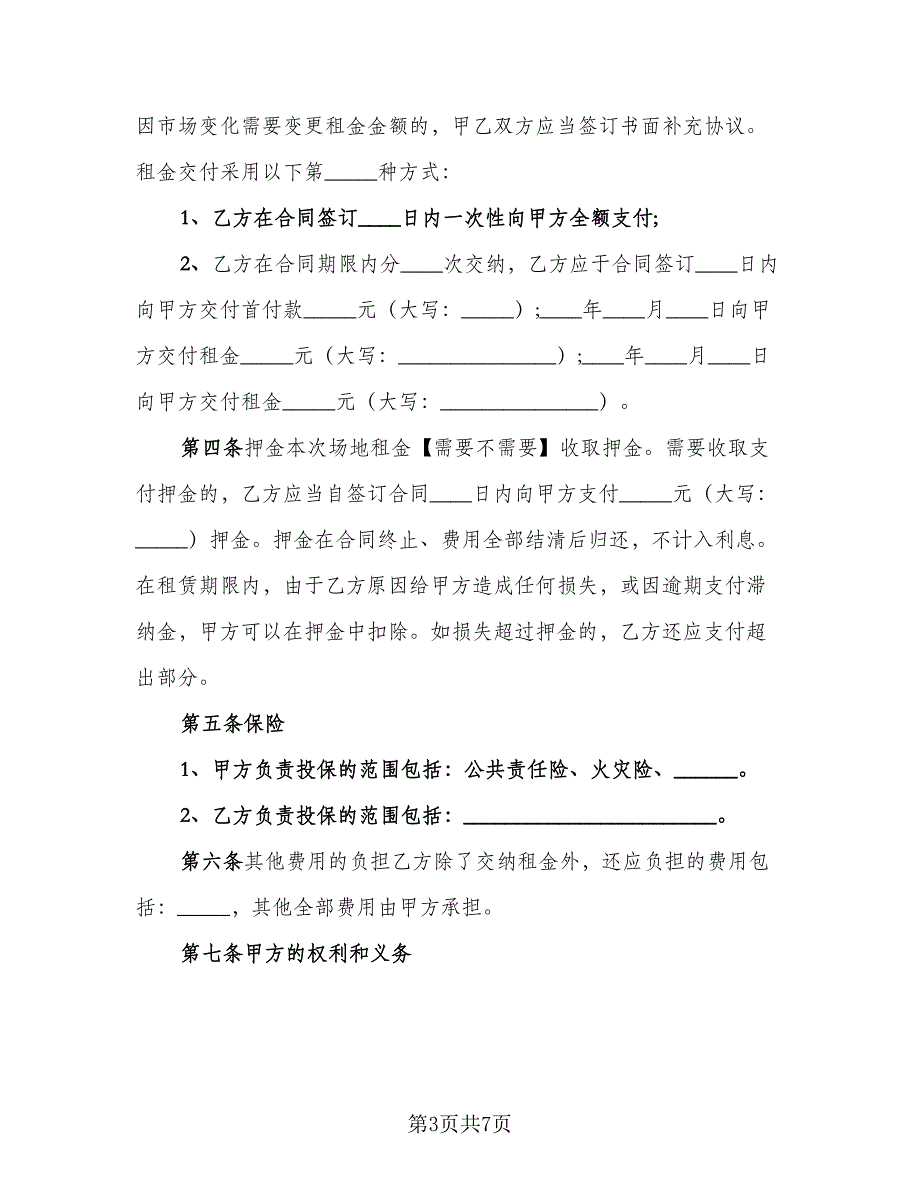 因市场变化需要变更租金金额的，甲乙双方应当签订书面补充协议。
租金交付采用以下第_____种方式：
1、乙方在合同签订____日内一次性向甲方全额支付;
2、乙方在合同期限内分____次交纳，乙方应于合同签订____日内
向甲方交付首付款_____元（大写：_____）;____年____月____日向甲
方交付租金_____元（大写：_______________）;____年____月____日
向甲方交付租金_____元（大写：_______________）。
第四条押金本次场地租金【需要不需要】收取押金。需要收取支
付押金的，乙方应当自签订合同____日内向甲方支付_____元（大写：
_____）押金。押金在合同终止、费用全部结清后归还，不计入利息。
在租赁期限内，由于乙方原因给甲方造成任何损失，或因逾期支付滞
纳金，甲方可以在押金中扣除。如损失超过押金的，乙方还应支付超
出部分。
第五条保险
1、甲方负责投保的范围包括：公共责任险、火灾险、______。
2、乙方负责投保的范围包括：________________________。
第六条其他费用的负担乙方除了交纳租金外，还应负担的费用包
括：_____，其他全部费用由甲方承担。
第七条甲方的权利和义务
第3页共7页